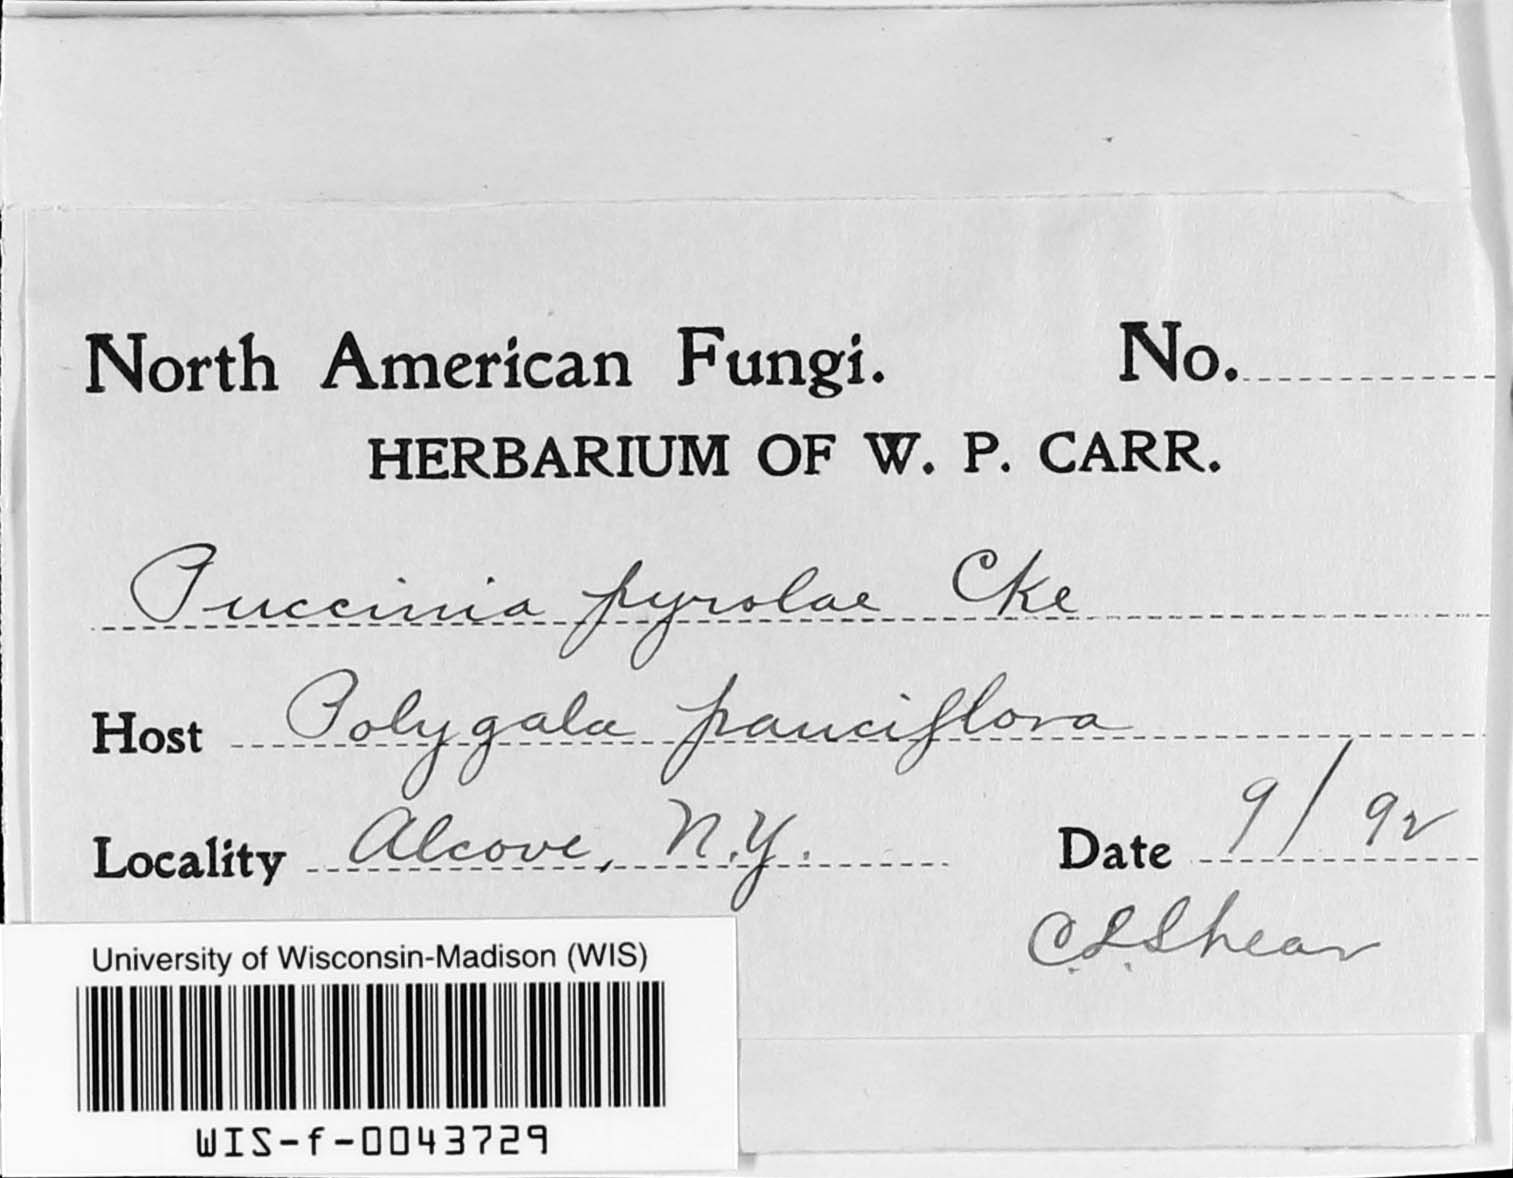 North American Fungi. No.
HERBARIUM OF W. P. CARR.
Puccinia pyrolae Cke
Host Polygala pauciflora
Locality Alcove, N.Y. Date 9/92
C.L.Shear
University of Wisconsin-Madison (WIS)
WIS-f-0043729